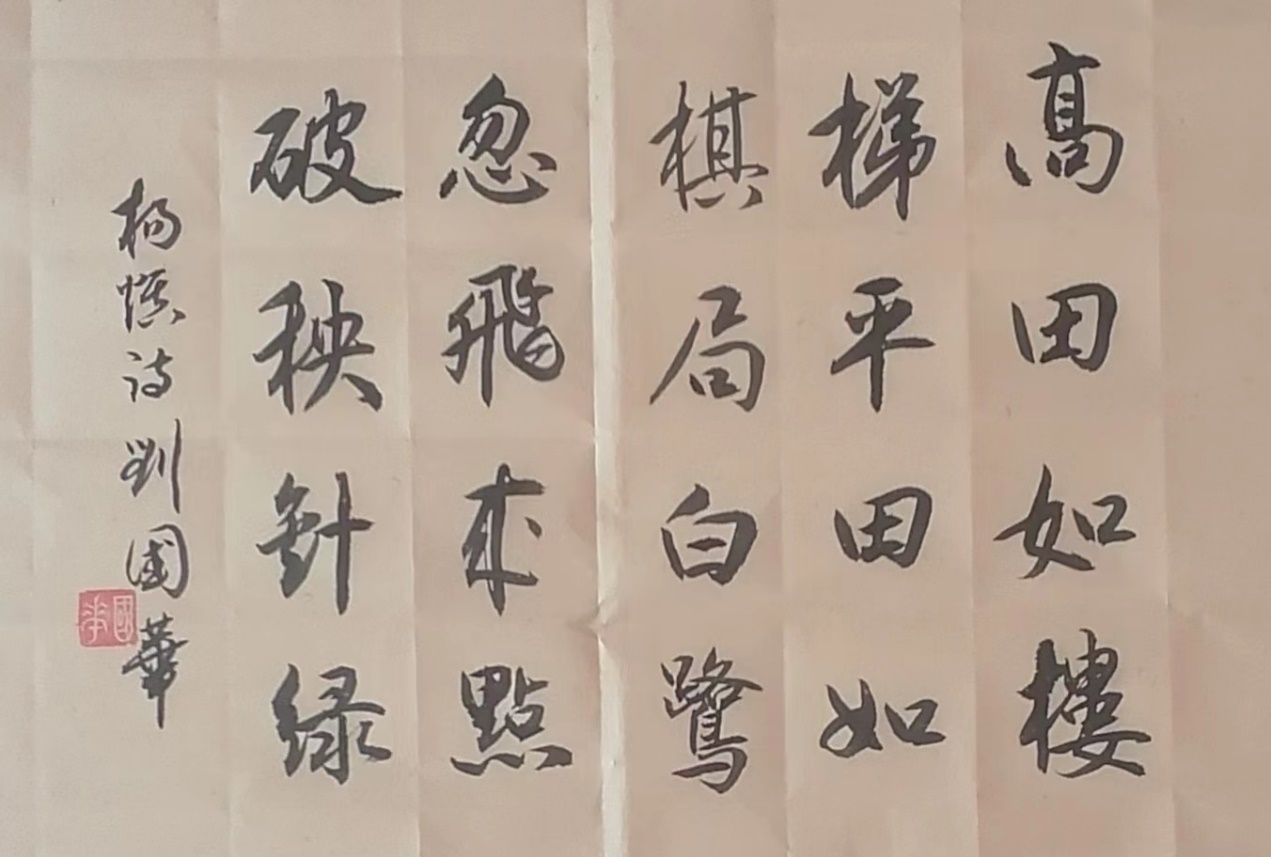 高田如樓
梯平田如
棋局白鷺
忽飛來點
破秧針緑
楊慎诗劉國華
國華